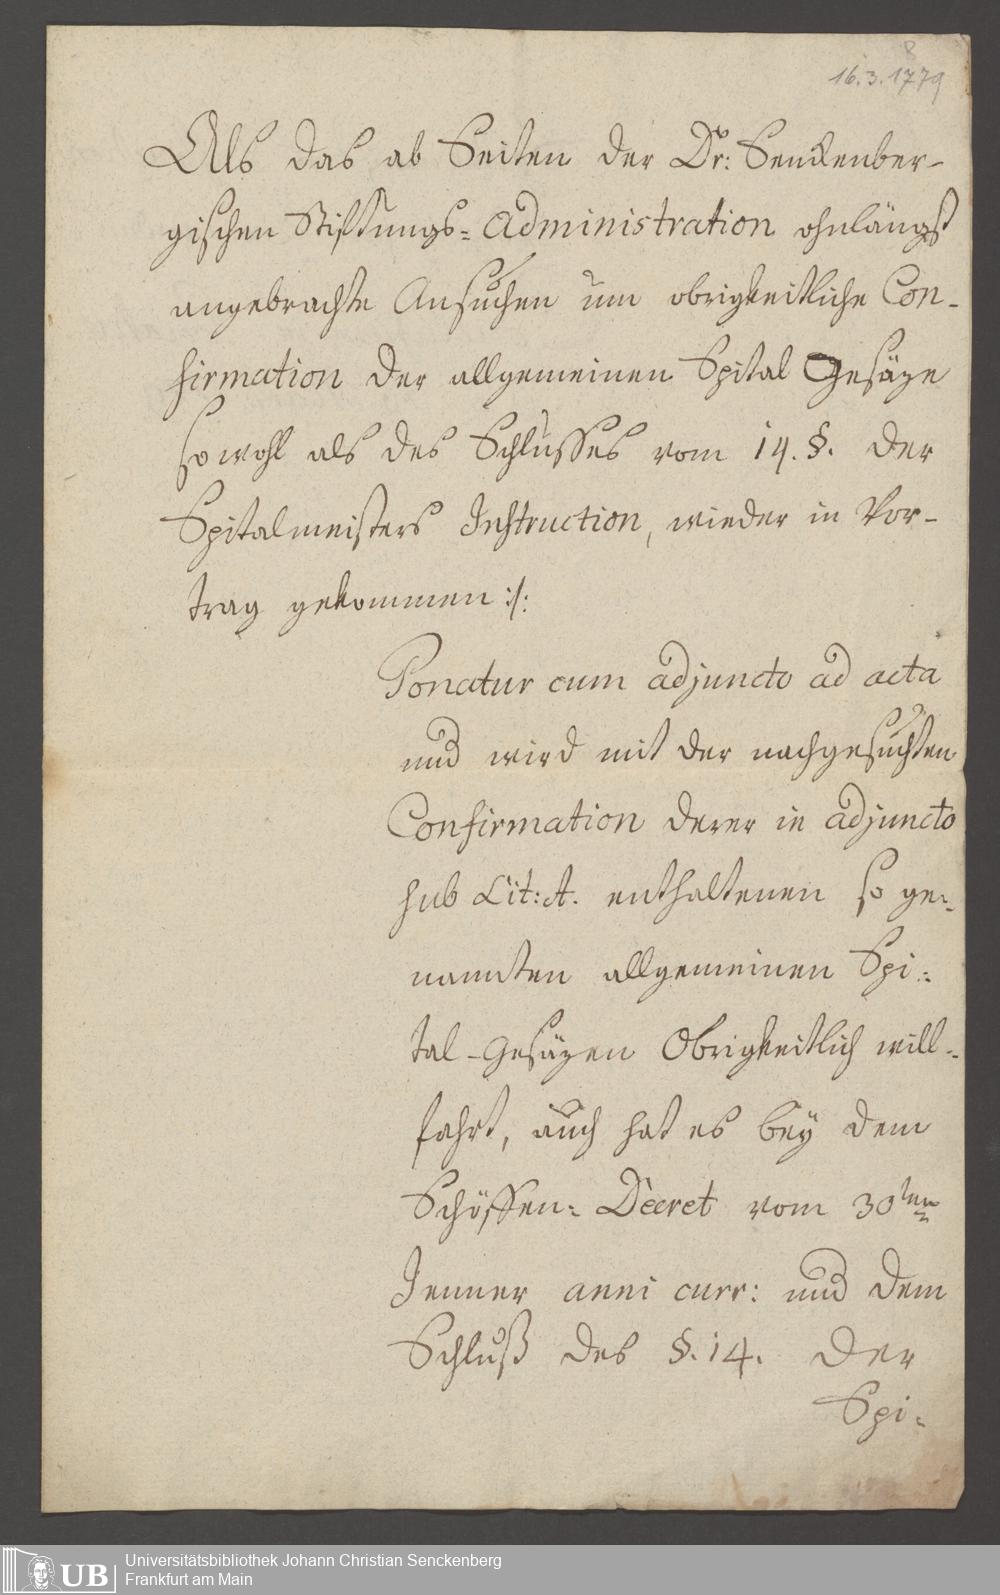 8
16.3.1779
Als das ab Seiten der Dr: Senckenber-
gischen Stiftungs= Administration ohnlängst
angebrachte Ansuchen um obrigkeitliche Con-
firmation der allgemeinen Spital Gesäze
sowohl als des Schlusses vom 14. §. der
Spitalmeisters Instruction, wieder in Vor-
trag gekommen :/:
Ponatur cum adjuncto ad acta
und wird mit der nachgesuchten
Confirmation derer in adjuncto
sub Lit: A. enthaltenen so ge=
nannten allgemeinen Spi=
tal-Gesäzen Obrigkeitlich will=
fahrt, auch hat es bey dem
Schöffen= Decret vom 30ten
Jenner anni curr: und dem
Schluß des §. 14. der
Spi=
UB
Universitätsbibliothek Johann Christian Senckenberg
Frankfurt am Main